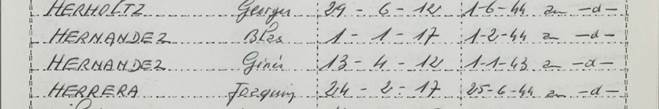 HERHOLTZ Georges 29 - 6 - 12 1-6-44 au -d-
HERNANDEZ Blas 1 - 1 - 17 1-2-44 au -d-
HERNANDEZ Ginés 13 - 4 - 12 1-1-43 au -d-
HERRERA Joaquin 24 - 2 - 17 25-6-44 au -d-